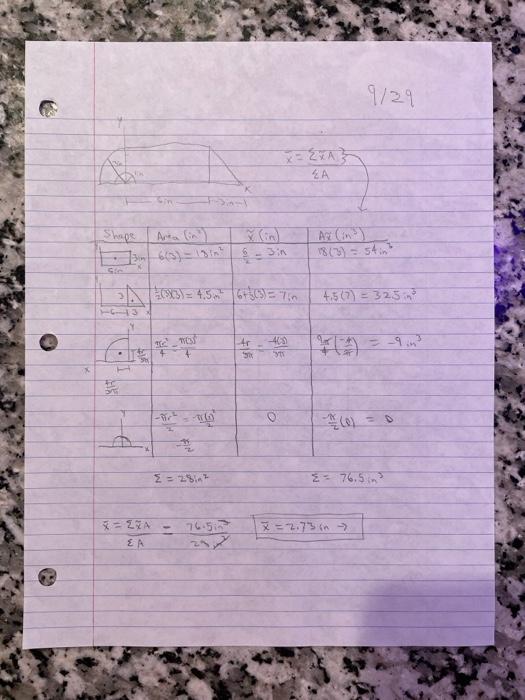 9/29
y
3in
1in
x
6in
3in
x̄ = Σx̃A
ΣA
Shape
Area (in²)
x̃ (in)
Ax̃ (in³)
3in
6in
x
6(3) = 18in²
6/2 = 3in
18(3) = 54in³
3
6
3
½(3)(3) = 4.5in²
6+⅓(3) = 7in
4.5(7) = 32.5in³
y
4r/3π
x
4r/3π
πr²/4 = π(3)²/4
-4r/3π = -4(3)/3π
9π/4 (-4/π) = -9in³
y
x
-πr²/2 = -π(1)²/2
-π/2
0
-π/2 (0) = 0
Σ = 28in²
Σ = 76.5in³
x̄ = Σx̃A/ΣA = 76.5in³/28in²
x̄ = 2.73in →